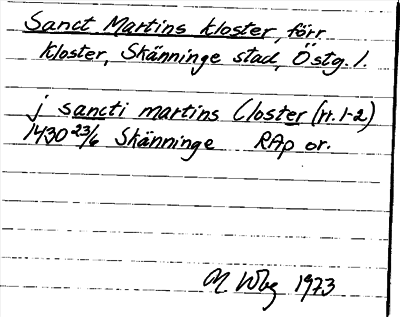 Sanct Martins kloster, förr
kloster, Skänninge stad, Östg. l.
j sancti martins Closter (r. 1-2)
1430 23/6 Skänninge RAp or.
M Wbg 1973